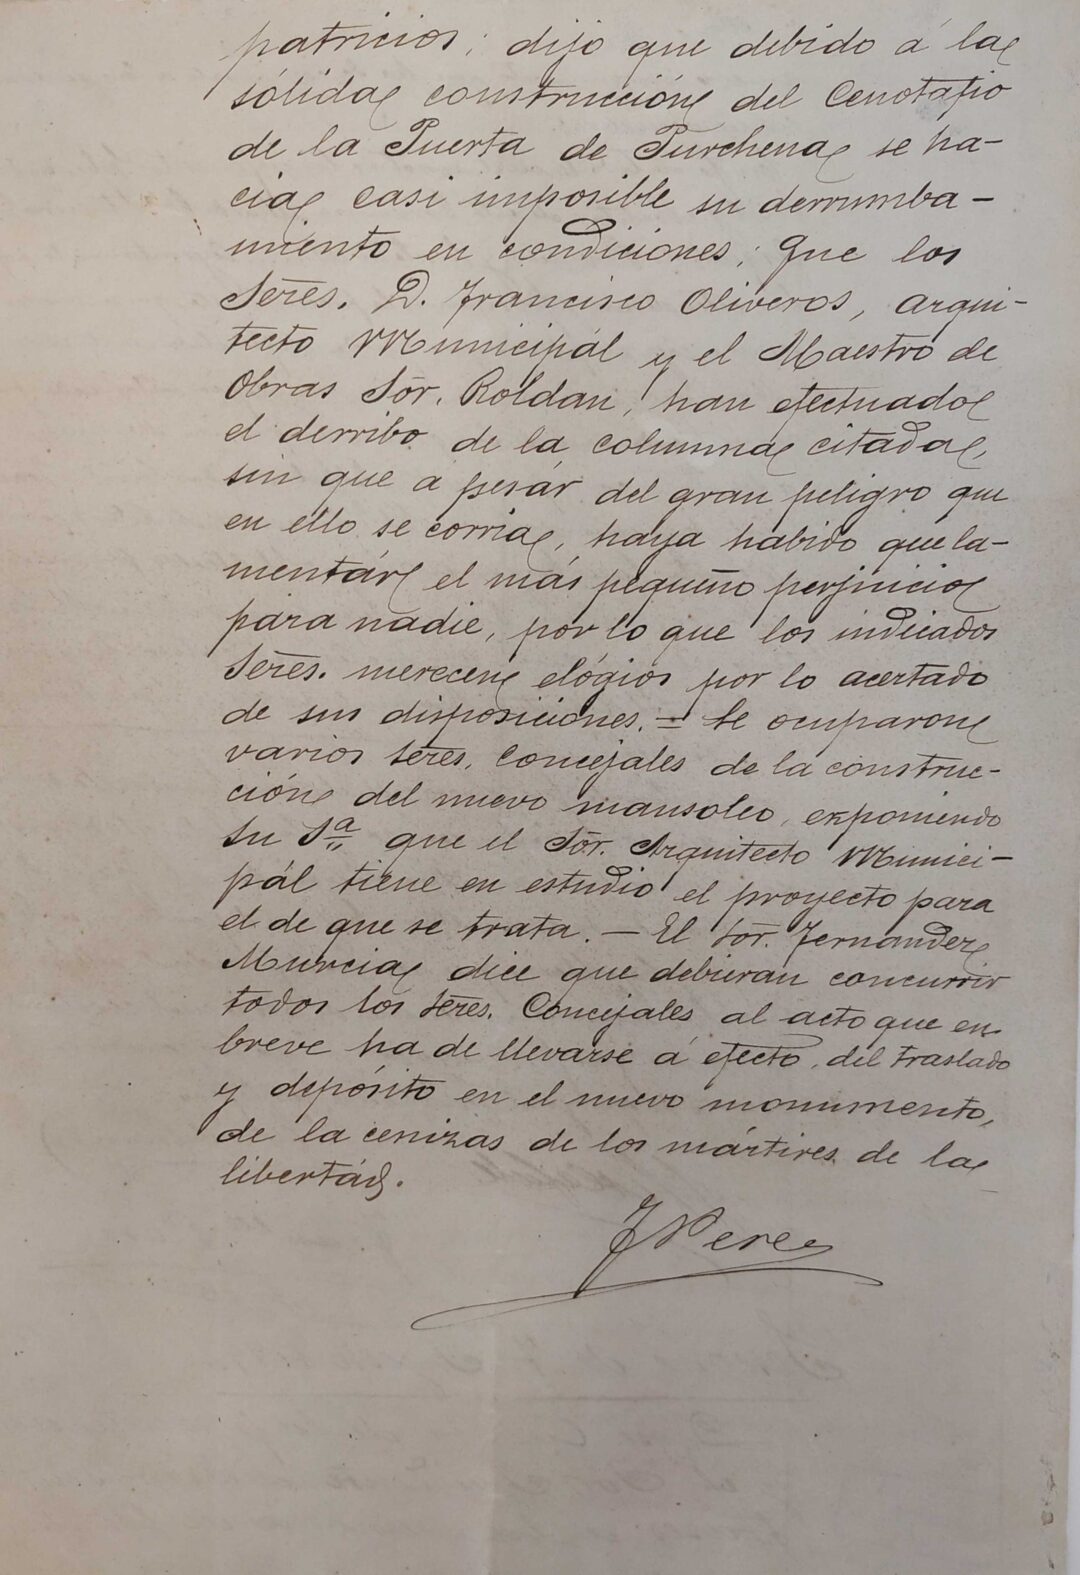 patricios; dijo que debido á la
sólida construcción del Cenotafio
de la Puerta de Purchena se ha-
cia casi imposible su derrumba-
miento en condiciones; Que los
Señes. D. Francisco Oliveros, arqui-
tecto Municipál y el Maestro de
Obras Sōr. Roldan, han efectuado
el derribo de la columna citada,
sin que a pesár del gran peligro que
en ello se corria, haya habido que la-
mentár el más pequeño perjuicio
para nadie, por lo que los indicados
Señes. merecen elógios por lo acertado
de sus disposiciones. = Se ocuparon
varios Señes. Concejales de la construc-
ción del nuevo mansoleo, exponiendo
su Sª que el Sōr. Arquitecto Munici-
pál tiene en estudio el proyecto para
el de que se trata. — El Sōr. Fernandez
Murcia dice que debieran concurrir
todos los Señes. Concejales al acto que en
breve ha de llevarse á efecto, del traslado
y depósito en el nuevo monumento,
de la cenizas de los mártires de la
libertád.
J Perez